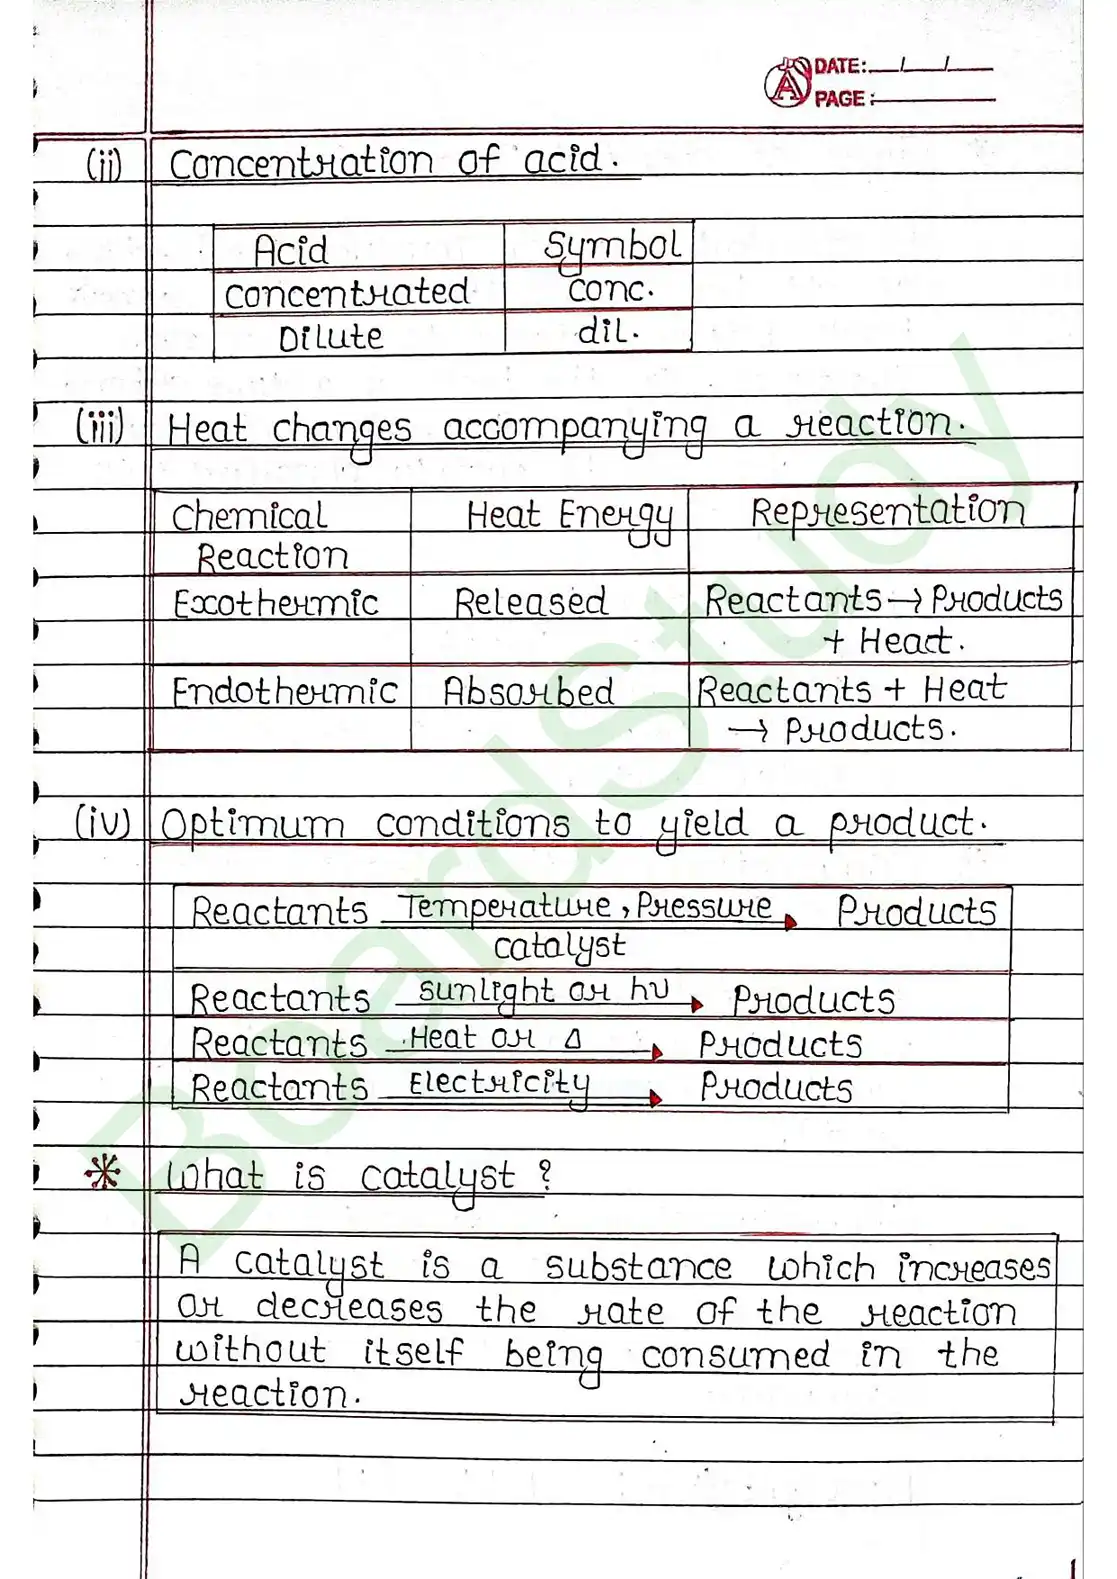 DATE: / /
PAGE :
(ii) Concentration of acid.
Acid Symbol
Concentrated conc.
Dilute dil.
(iii) Heat changes accompanying a reaction.
Chemical Heat Energy Representation
Reaction
Exothermic Released Reactants → Products
+ Heat.
Endothermic Absorbed Reactants + Heat
→ Products.
(iv) Optimum conditions to yield a product.
Reactants Temperature, Pressure Products
catalyst
Reactants sunlight or hν Products
Reactants Heat or Δ Products
Reactants Electricity Products
What is catalyst ?
A catalyst is a substance which increases
or decreases the rate of the reaction
without itself being consumed in the
reaction.
BoardStudy